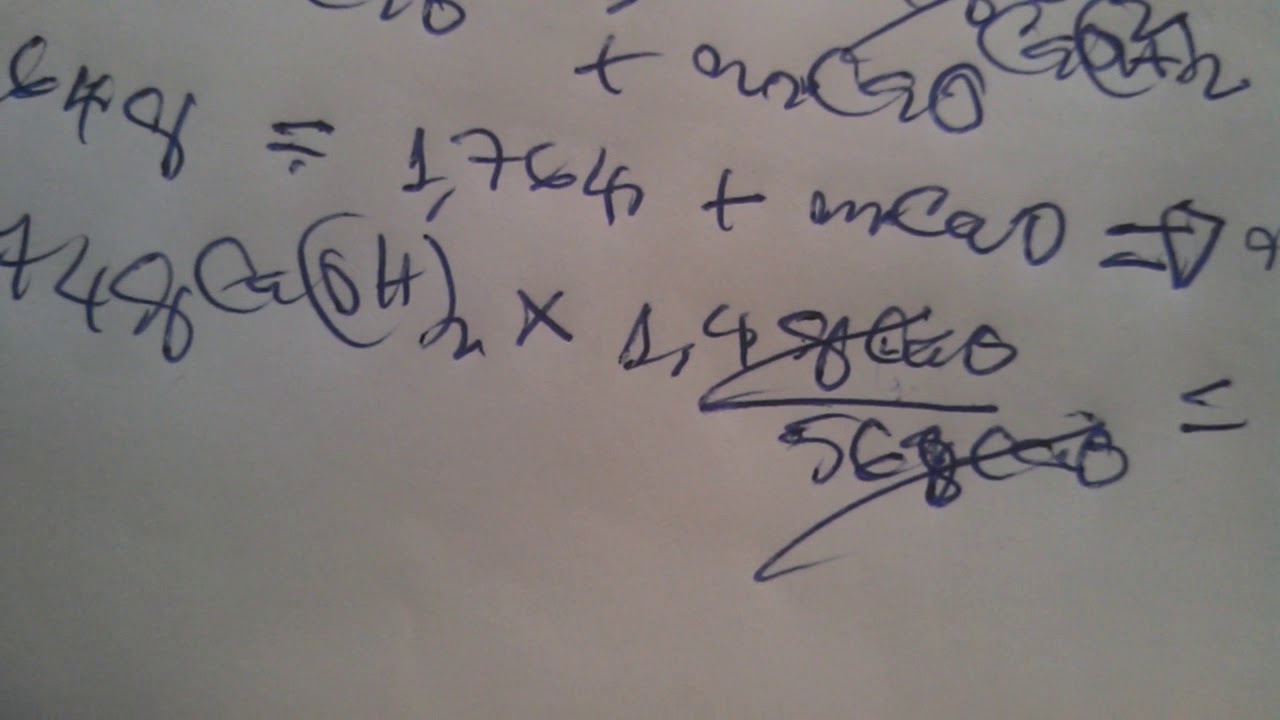 + m₂CaO Ca(OH)₂
64g = 1,764 + mCaO ⇒
74g Ca(OH)₂ × 1,4gCaO =
56gCaO